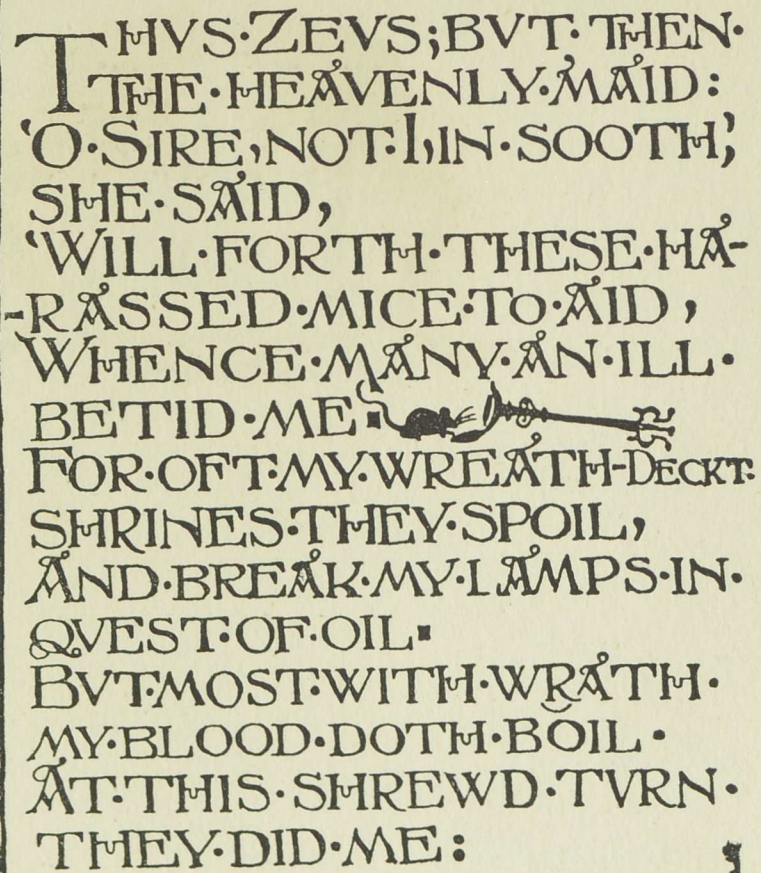 THVS·ZEVS;BVT·THEN·
THE·HEAVENLY·MAID:
‘O·SIRE,NOT·I,IN·SOOTH,’
SHE·SAID,
‘WILL·FORTH·THESE·HA-
-RASSED·MICE·TO·AID,
WHENCE·MANY·AN·ILL·
BETID·ME▪
FOR·OFT·MY·WREATH-DECKT·
SHRINES·THEY·SPOIL,
AND·BREAK·MY·LAMPS·IN·
QVEST·OF·OIL▪
BVT·MOST·WITH·WRATH·
MY·BLOOD·DOTH·BOIL·
AT·THIS·SHREWD·TVRN·
THEY·DID·ME: